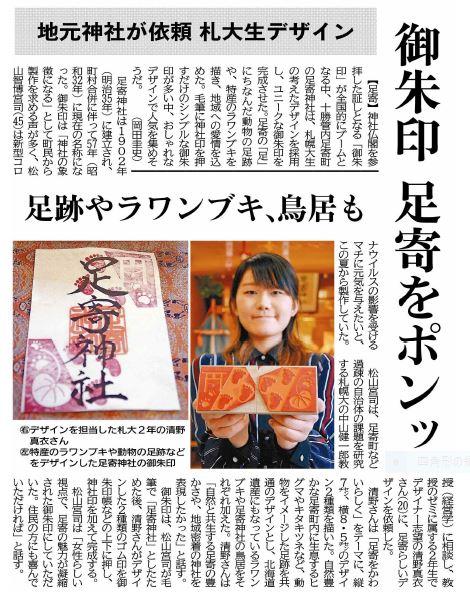 御朱印 足寄をポンッ
地元神社が依頼 札大生デザイン
【足寄】神社仏閣を参
拝した証しとなる「御朱
印」が全国的にブームと
なる中、十勝管内足寄町
の足寄神社は、札幌大生
の考えたデザインを採用
し、ユニークな御朱印を
完成させた。足寄の「足」
にちなんだ動物の足跡
や、特産のラワンブキを
描き、地域への愛情を込
めた。毛筆に神社印を押
すだけのシンプルな御朱
印が多い中、おしゃれな
デザインで人気を集めそ
うだ。（岡田圭史）
足寄神社は1902年
（明治35年）に建立され、
町村合併に伴って57年（昭
和32年）に現在の名称にな
った。御朱印は「神社の象
徴になる」として町民から
製作を求める声が多く、松
山智博宮司(45)は新型コロ
足跡やラワンブキ、鳥居も
ナウイルスの影響を受ける
マチに元気を与えたいと、
この夏から製作していた。
松山宮司は、足寄町など
過疎の自治体の課題を研究
する札幌大の中山健一郎教
足寄神社
㊨デザインを担当した札大2年の清野
真衣さん
㊧特産のラワンブキや動物の足跡など
をデザインした足寄神社の御朱印
授（経営学）に相談し、教
授のゼミに属する2年生で
デザイナー志望の清野真衣
さん(20)に、足寄らしいデ
ザインを依頼した。
清野さんは「足寄をかわ
いらしく」をテーマに、縦
7㌢、横8・5㌢のデザイ
ン2種類を描いた。自然豊
かな足寄町内に生息するヒ
グマやキタキツネなど、動
物をイメージした足跡を共
通のデザインとし、北海道
遺産にもなっているラワン
ブキや足寄神社の鳥居をそ
れぞれ加えた。清野さんは
「自然と共生する足寄の豊
かさや、地域密着の神社を
表現したかった」と話す。
御朱印は、松山宮司が毛
筆で「足寄神社」としたた
めた後、清野さんがデザイ
ンした2種類のゴム印を御
朱印帳などの上下に押し、
神社印を加えて完成する。
松山宮司は「女性らしい
視点で、足寄の魅力が凝縮
された御朱印にしていただ
いた。住民の方にも喜んで
いただければ」と話す。